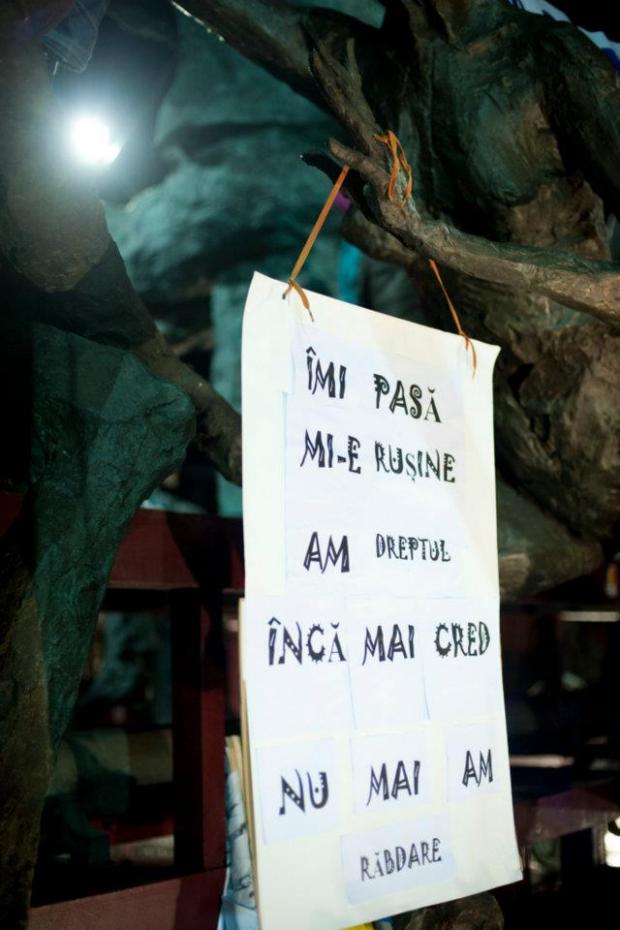 ÎMI PASĂ
MI-E RUȘINE
AM DREPTUL
ÎNCĂ MAI CRED
NU MAI AM
RĂBDARE